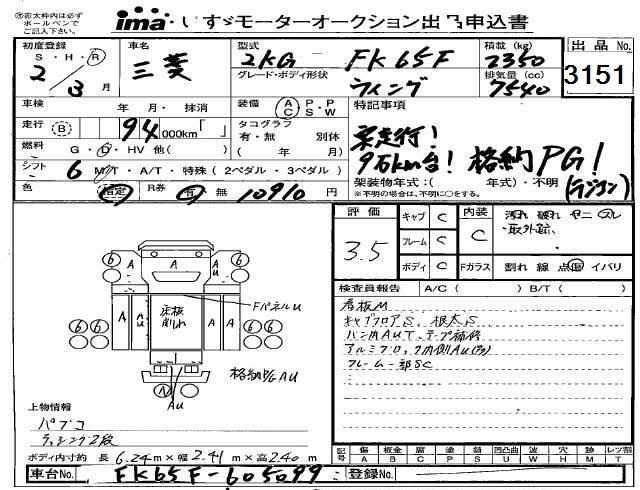 ㊟太枠内は必ず
ボールペンで
ご記入下さい。
ima・いすゞモーターオークション出品申込書
初度登録 S・H・R 2年3月
車名 三菱
型式 2KG- FK65F
グレード・ボディ形状 ウィング
積載(kg) 2350
排気量(cc) 7540
出品No. 3151
車検 年 月・抹消
走行 B 94,000km「 」
燃料 G・D・HV 他( )
シフト 6 M/T・A/T・特殊(2ペダル・3ペダル)
色 指定 R券 有・無 10910円
装備 AC PS PW
タコグラフ 有・無 別体
( 年 月)
特記事項
実走行!
9万km台! 格納PG!
架装物年式:( 年式)・不明 (ラジコン)
※不明の場合は、不明に○をする。
評価 3.5
キャブ C
フレーム C
ボディ C
内装 C
汚れ 破れ ヤニ スレ
・取外跡
Fガラス 割れ 線 点傷 イバリ
検査員報告 A/C( ) B/T( )
看板M
キャブフロアS、根太S
バン内AUT、テープ補修
フレーム一部SC
⑥ A A AU ⑥
A U 床板削れ A U
FパネルU
⑥⑥ ⑥⑥
格納PG AU
AU
上物情報
パブコ
ラッシング2段
ボディ内寸約 長6.24m×幅2.41m×高2.40m
記号 傷A 板金B 腐C 塗P 錆S 凹U 凸凹曲U 波W 穴H 跡M レツ割T
車台No. FK65F-605099 登録No.